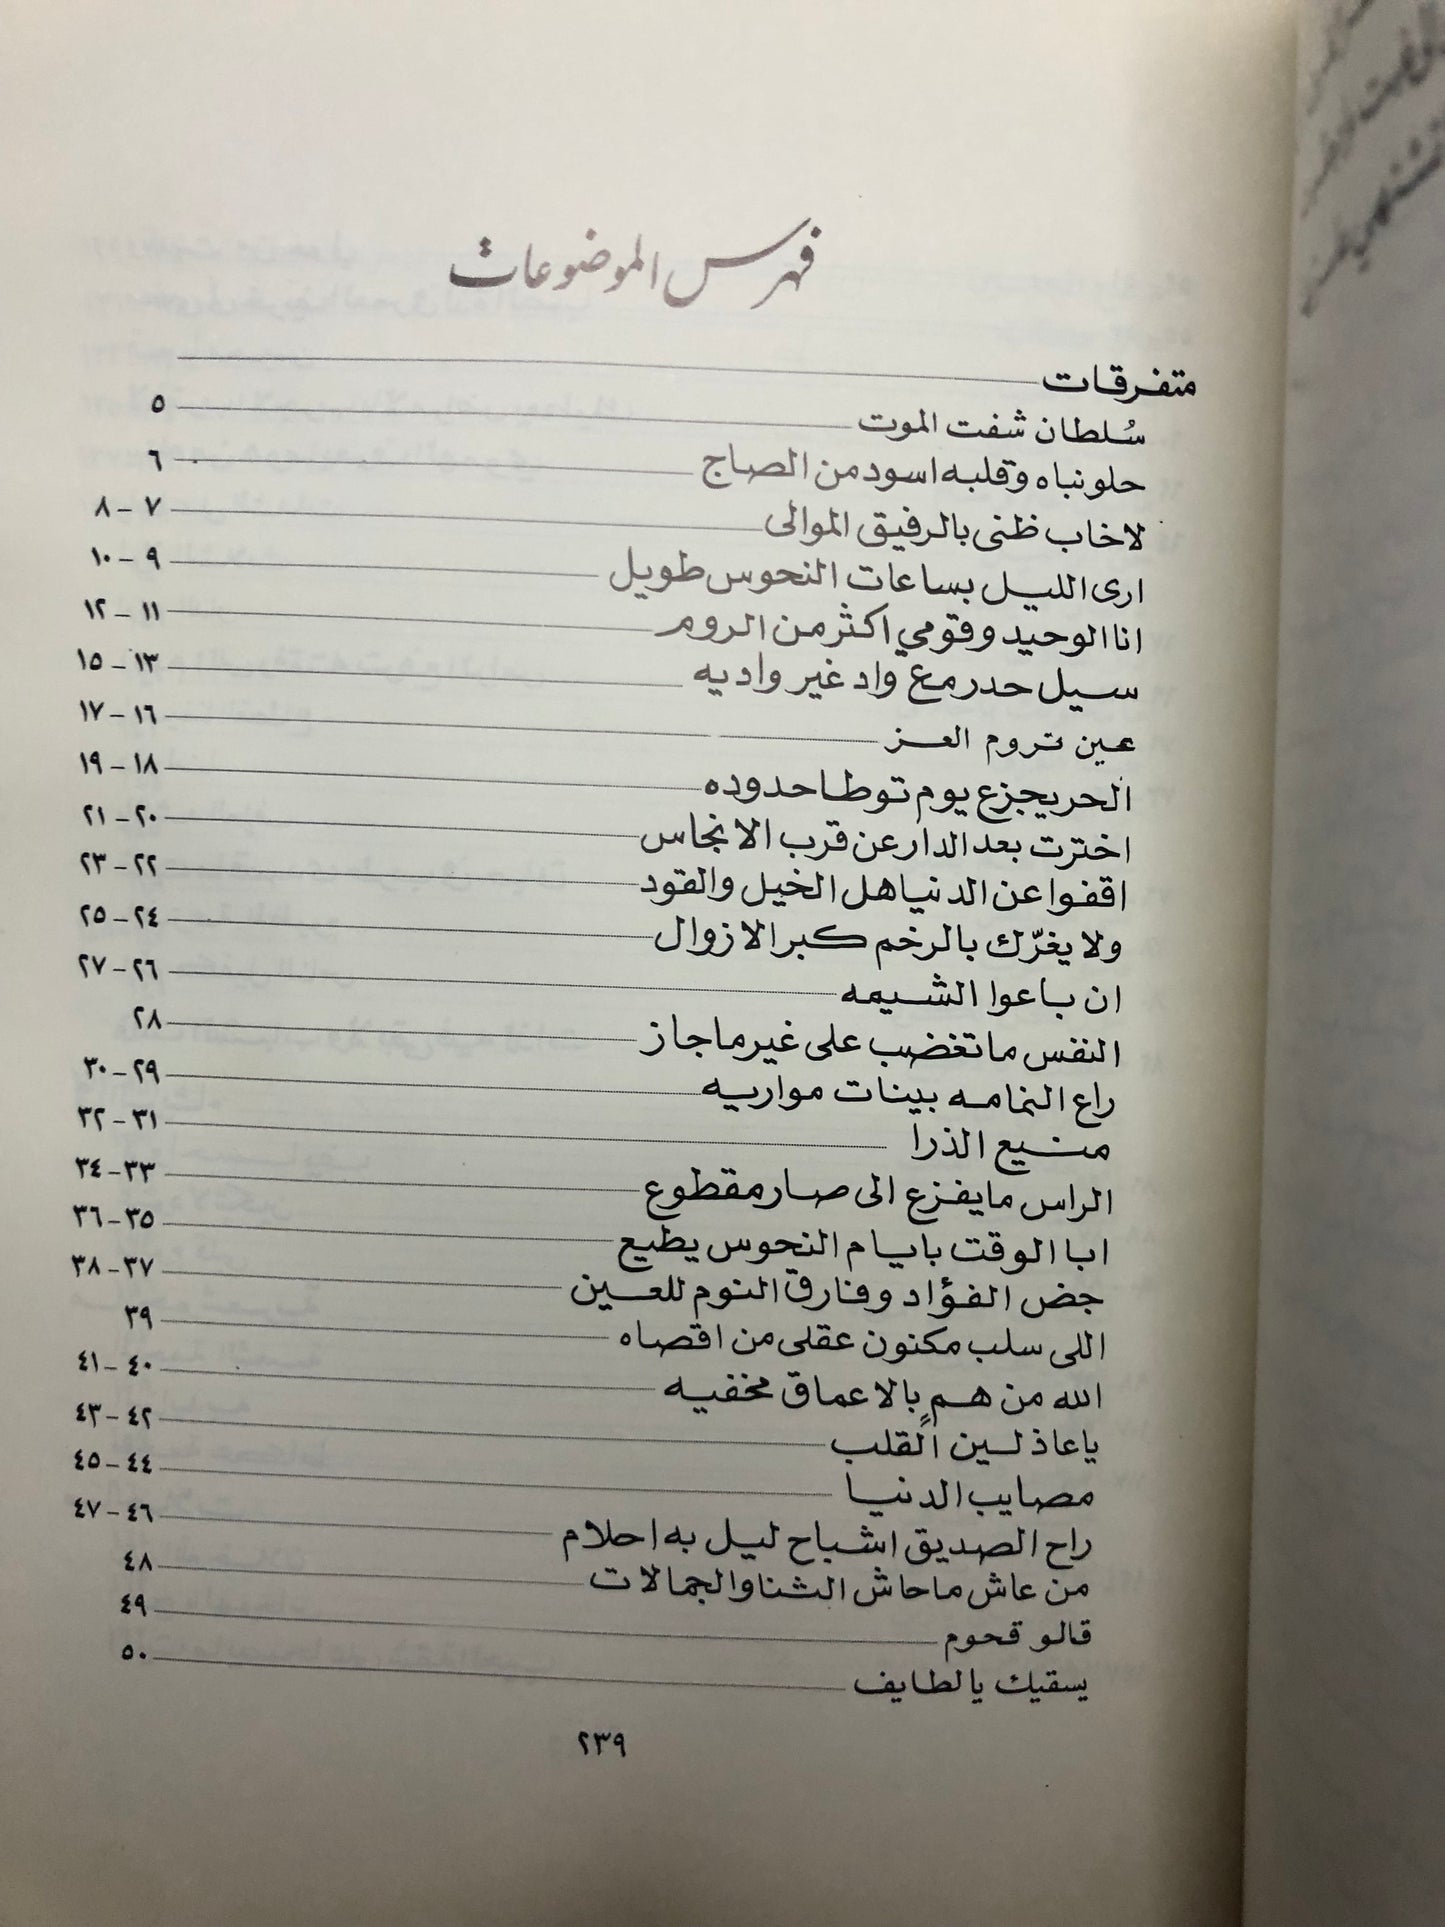 فهرس الموضوعات
متفرقات
سُلطان شفت الموت ٥
حلو نباه وقلبه اسود من الصاج ٦
لا خاب ظنى بالرفيق الموالى ٧ – ٨
ارى الليل بساعات النحوس طويل ٩ – ١٠
انا الوحيد وقومي اكثر من الروم ١١ – ١٢
سيل حدر مع واد غير واديه ١٣ – ١٥
عين تروم العز ١٦ – ١٧
الحر يجزع يوم توطا حدوده ١٨ – ١٩
اخترت بعد الدار عن قرب الانجاس ٢٠ – ٢١
اقفوا عن الدنيا هل الخيل والقود ٢٢ – ٢٣
ولا يغرّك بالرخم كبر الازوال ٢٤ – ٢٥
ان باعوا الشيمه ٢٦ – ٢٧
النفس ما تغضب على غير ما جاز ٢٨
راع النمامه بينات مواريه ٢٩ – ٣٠
منيع الذرا ٣١ – ٣٢
الراس ما يفزع الى صار مقطوع ٣٣ – ٣٤
ابا الوقت بايام النحوس يطيع ٣٥ – ٣٦
جض الفؤاد وفارق النوم للعين ٣٧ – ٣٨
اللى سلب مكنون عقلى من اقصاه ٣٩
الله من هم بالاعماق مخفيه ٤٠ – ٤١
يا عاذلين القلب ٤٢ – ٤٣
مصايب الدنيا ٤٤ – ٤٥
راح الصديق اشباح ليل به احلام ٤٦ – ٤٧
من عاش ما حاش الثنا والجمالات ٤٨
قالو قحوم ٤٩
يسقيك يالطايف ٥٠
٢٣٩